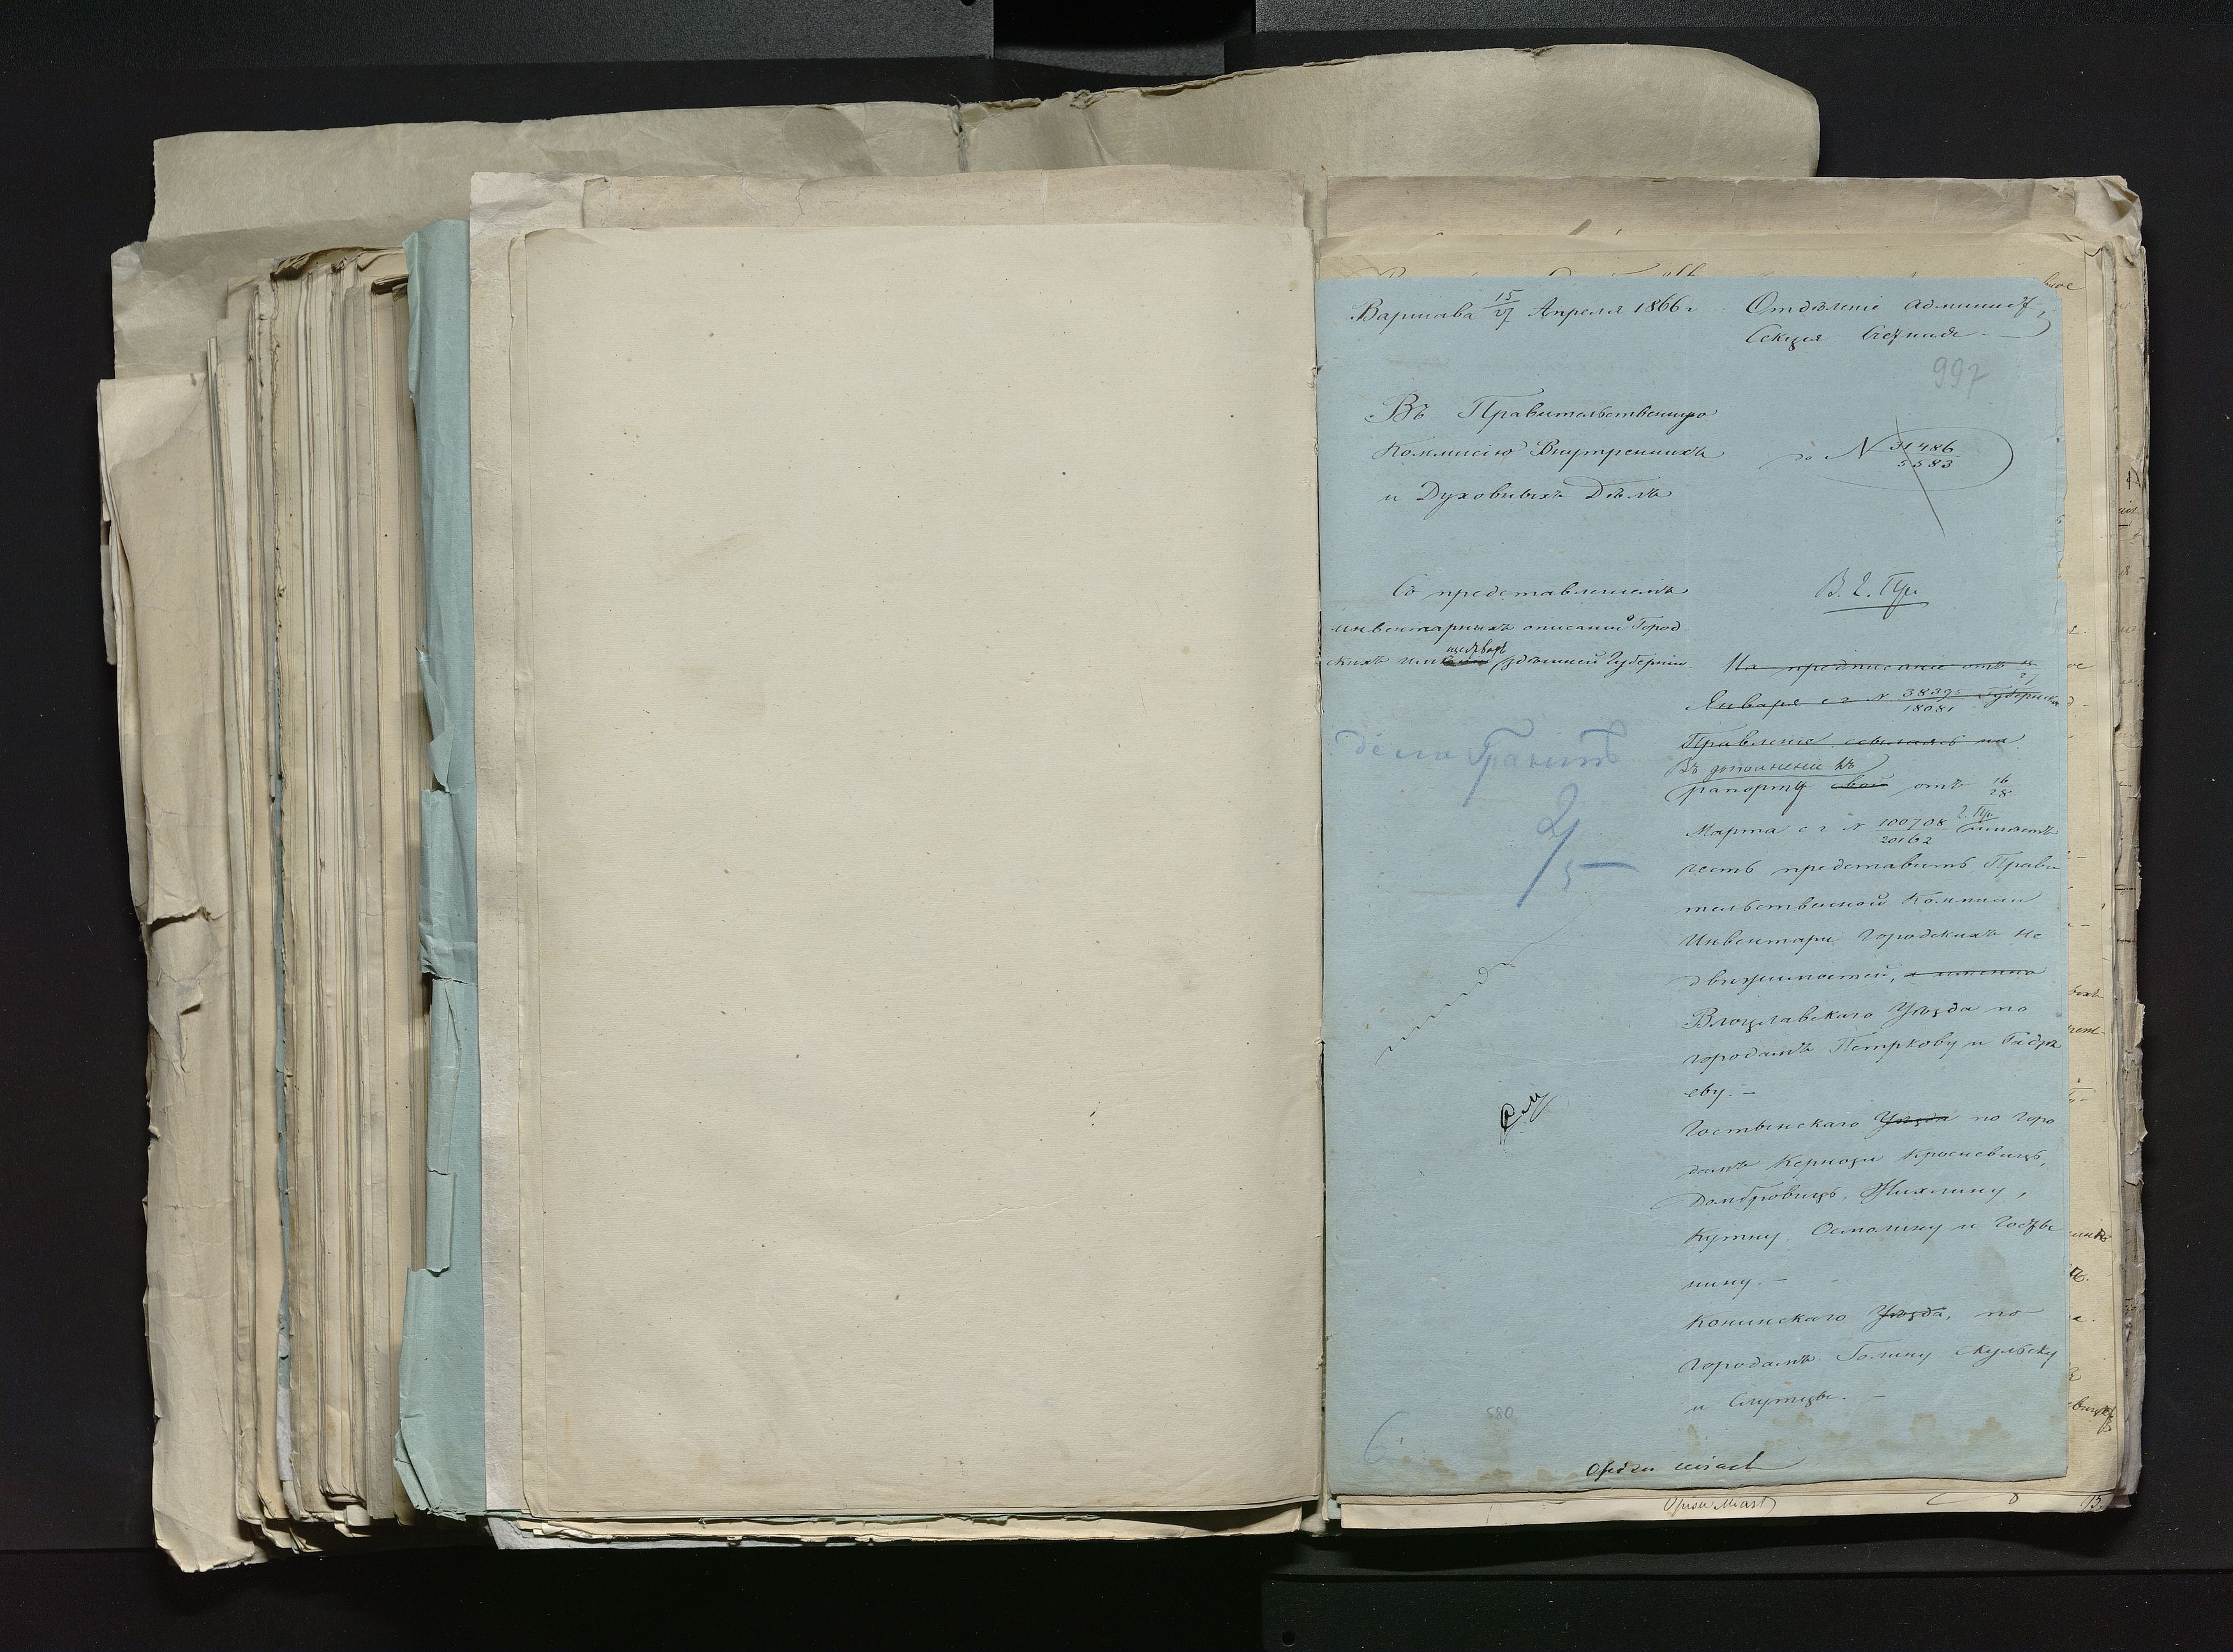 Варшава 15/27 Апреля 1866 г.
Отделеніе Админист,
Секція
997
Въ Правительственную
Коммисію Внутреннихъ
и Духовныхъ Делъ
до N 31486/5583
Со представленіемъ
инвентарныхъ описаній Город
скихъ имуществъ здешней Губерніи.
В. Г. Пр.
На предписаніе отъ 15/27
Января с г N 38395/18081 Губернское
Правленіе ссылаясь на
Въ дополненіе къ
рапорту свой отъ 16/28
Марта с г N 100708/20162 Г. Пр. имеетъ
честь представить Прави
тельственной Коммисіи
Инвентари Городскихъ не
движимостей, а именно
Влоцлавскаго Уезда по
городамъ Петркову и Радзе
еву. —
Гостынскаго Уезда по горо
дамъ Кернози Кросневицъ,
Домбровицъ, Жихлину,
Кутну, Осмолину и Госты
нину. —
Конинскаго Уезда, по
городамъ Голину Скульску
и Слупцы. —
2/5
580
6
Opisu miast
Opisu Miast